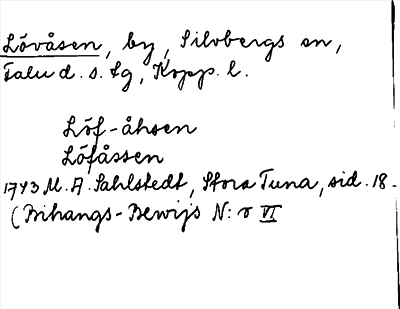 Lövåsen, by, Silvbergs sn,
Falu d. s. lg, Kopp. l.
Löf-åhsen
Löfåssen
1743 M. A. Sahlstedt, Stora Tuna, sid. 18.
(Bihangs-Bewijs N:o VI